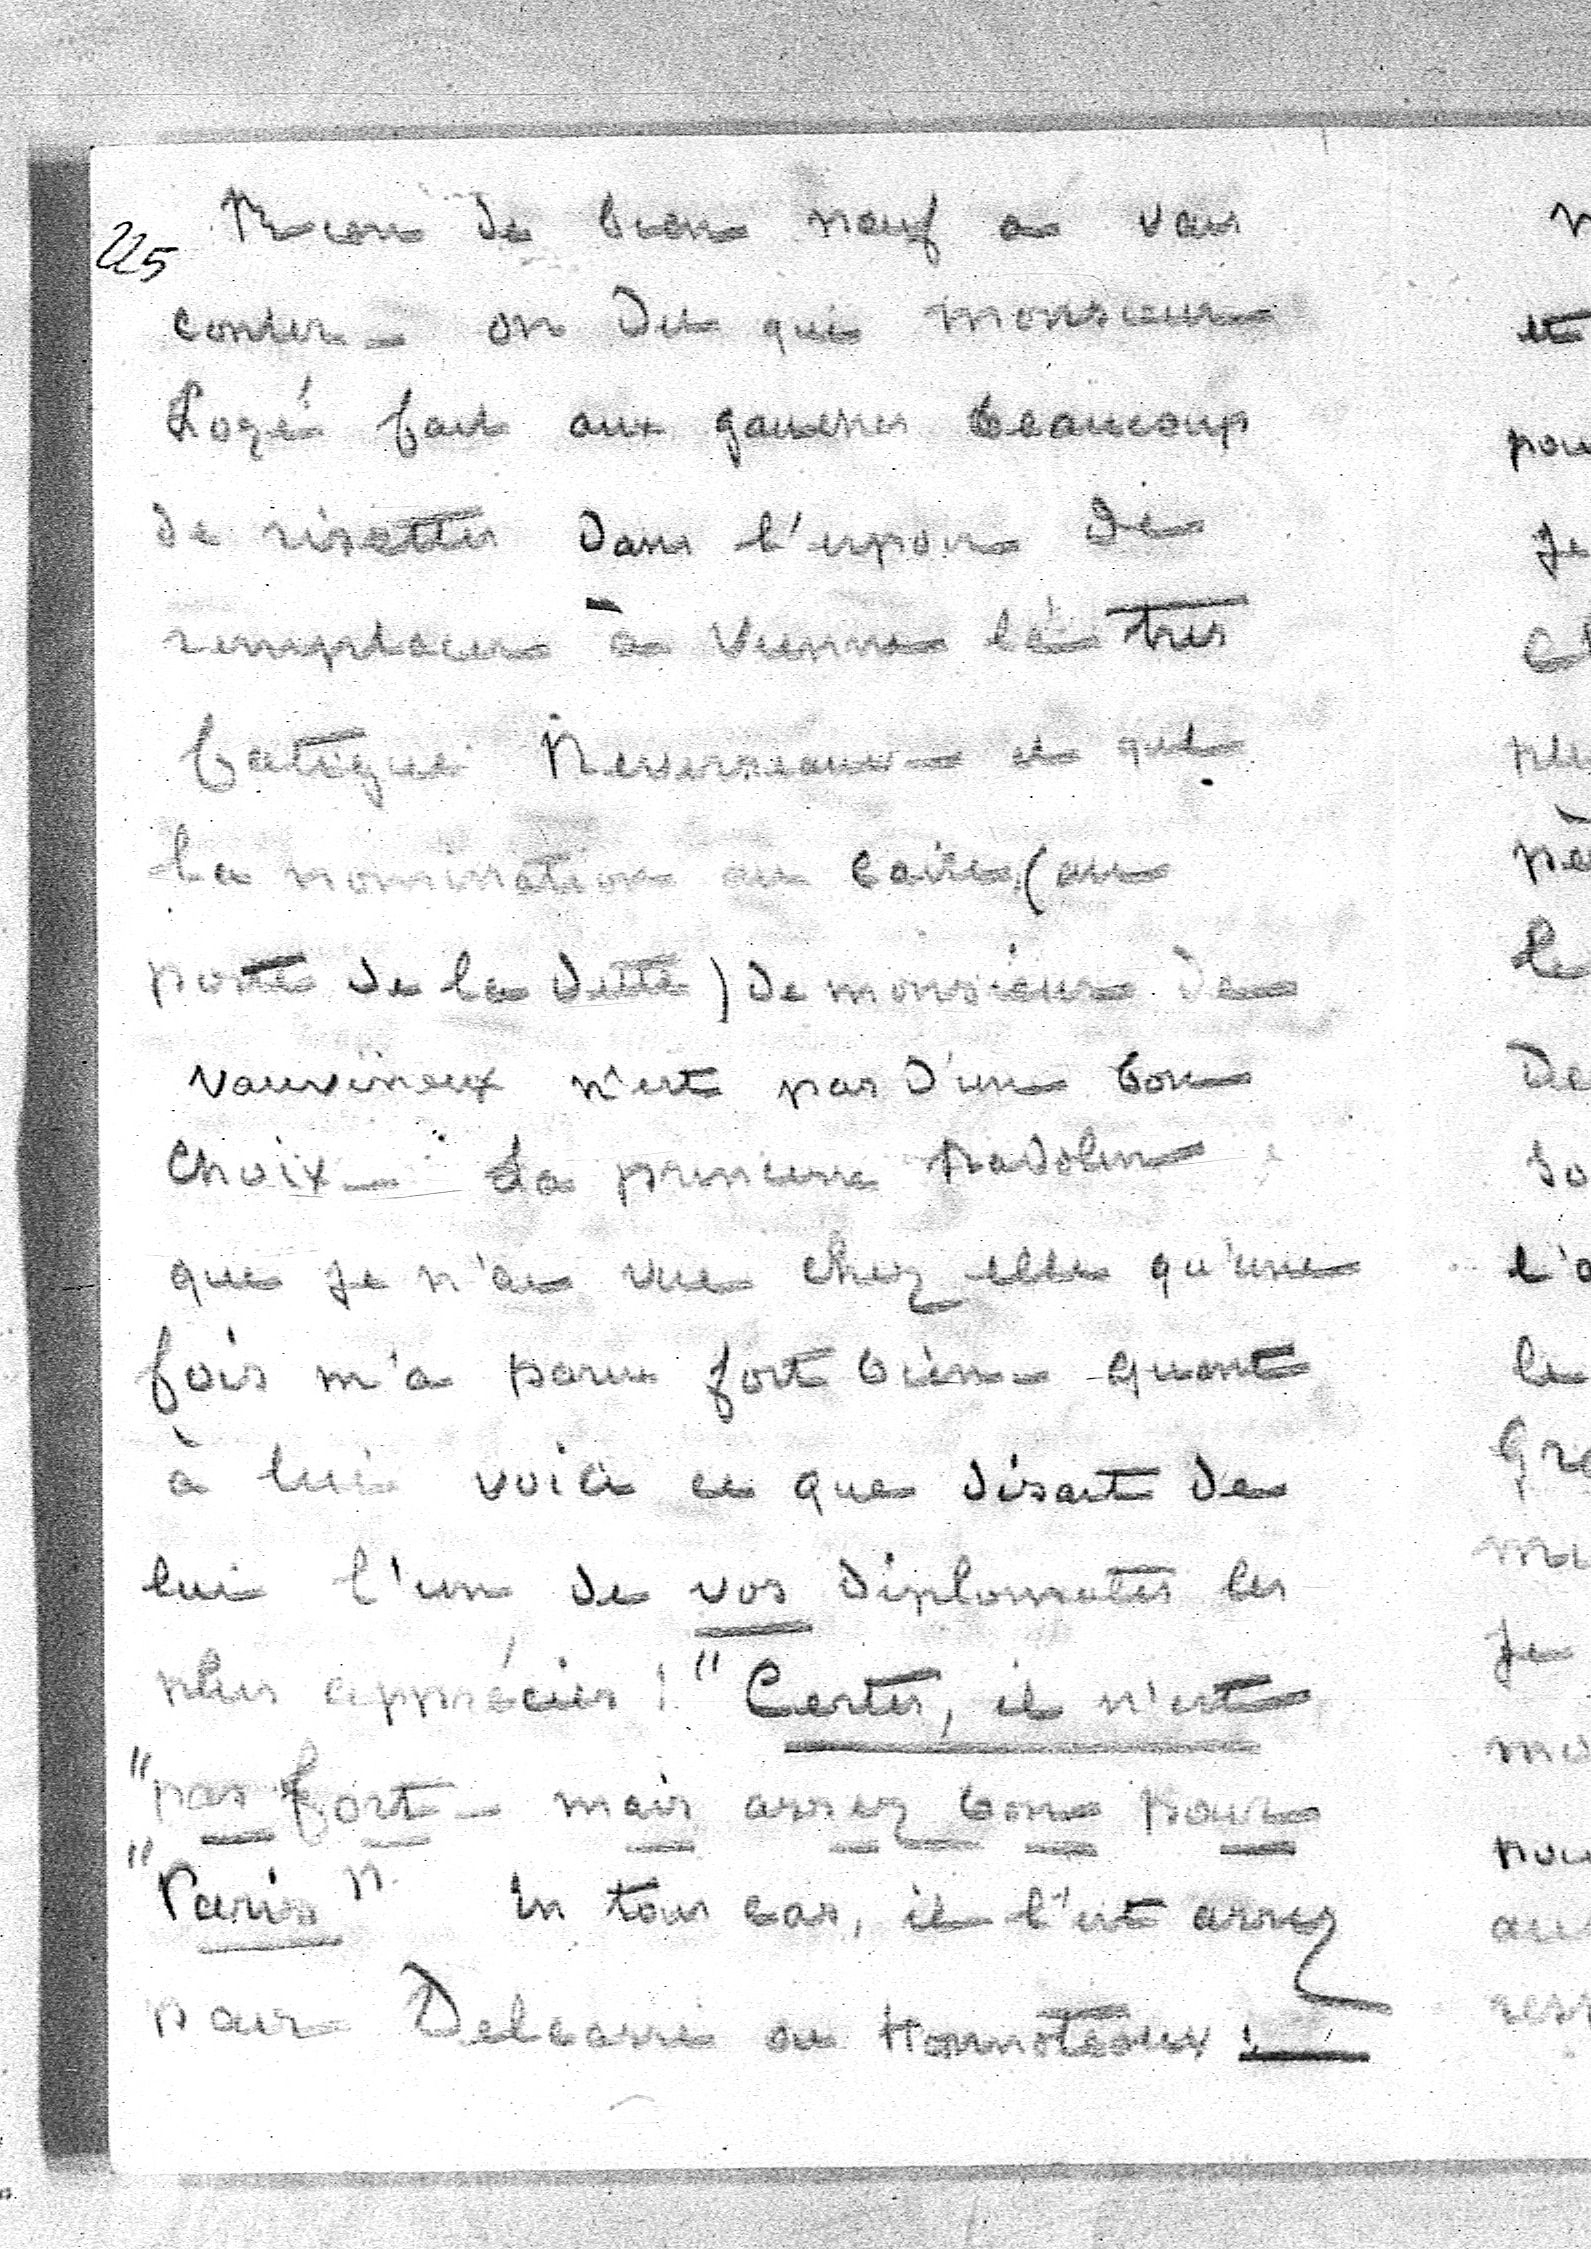 225
Rien de bien neuf à vous
conter - on dit que monsieur
Lozé fait aux gauches beaucoup
de risettes dans l'espoir de
remplacer à Vienne le très
fatigué Reverseaux - et que
la nomination au Caire (au
poste de la dette) de monsieur de
Vauvineux n'est pas d'un bon
choix - La princesse Radolin
que je n'ai vue chez elle qu'une
fois m'a paru fort bien - quant
à lui voici ce que disait de
lui l'un de vos diplomates les
plus appréciés : "Certes, il n'est
"pas fort - mais assez bon pour
"Paris". En tous cas, il l'est assez
pour Delcassé ou Hannoteaux !
et
Je
le
De
le
Je